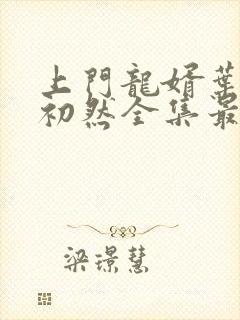 上門龍婿葉
初然全集最
梁璟慧